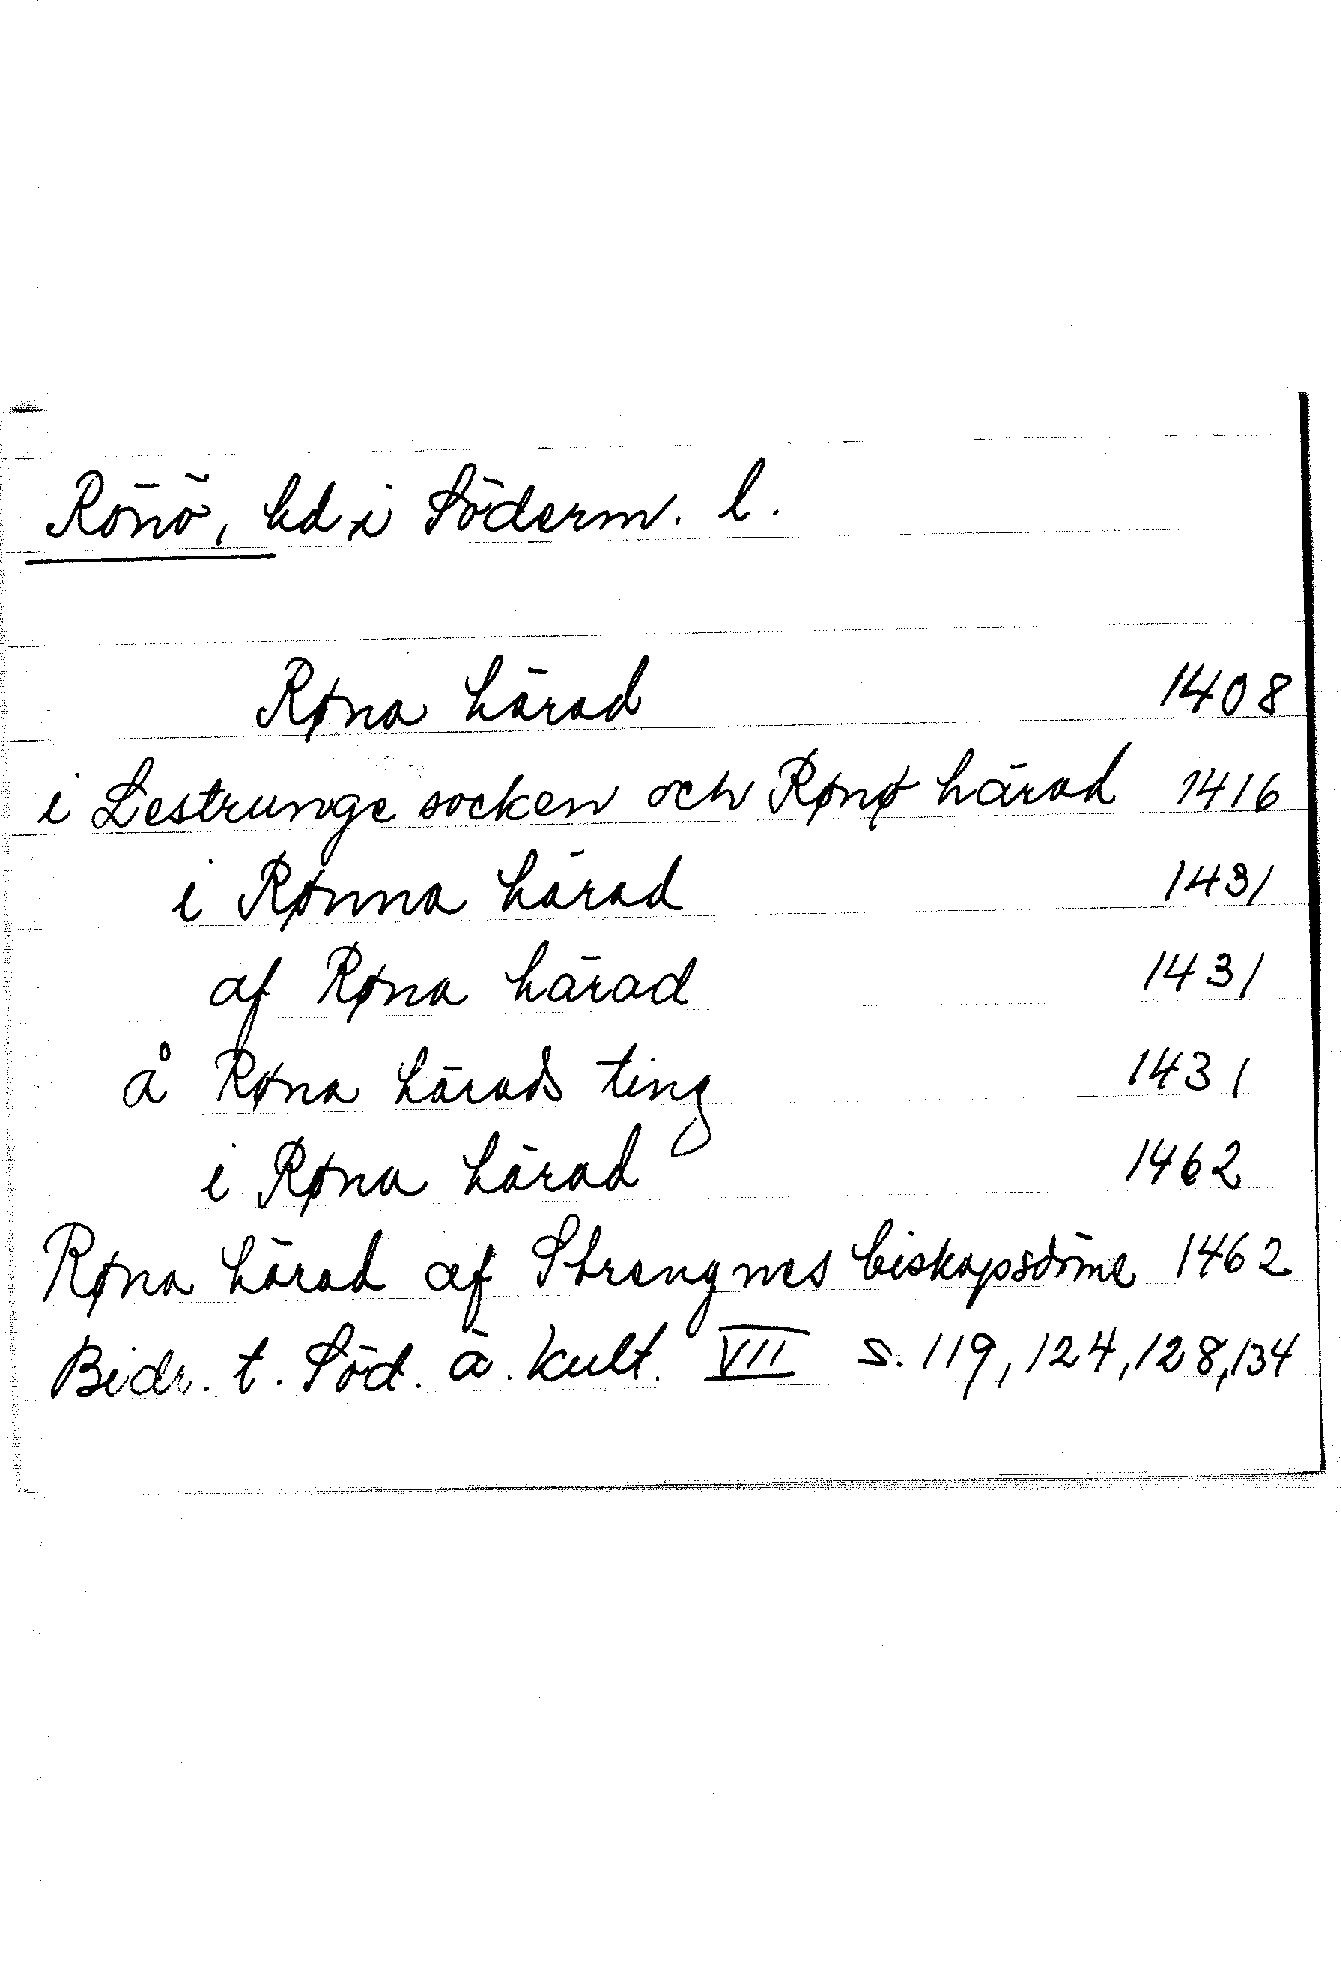 Rönö, hd i Söderm. l.
Røna härad 1408
i Lestrunge socken och Rønø härad 1416
i Rønna härad 1431
af Røna härad 1431
å Røna härads ting 1431
i Røna härad 1462
Røna härad af Strengnes biskopsdöme 1462
Bidr. t. Söd. ä. kult. VII s. 119, 124, 128, 134